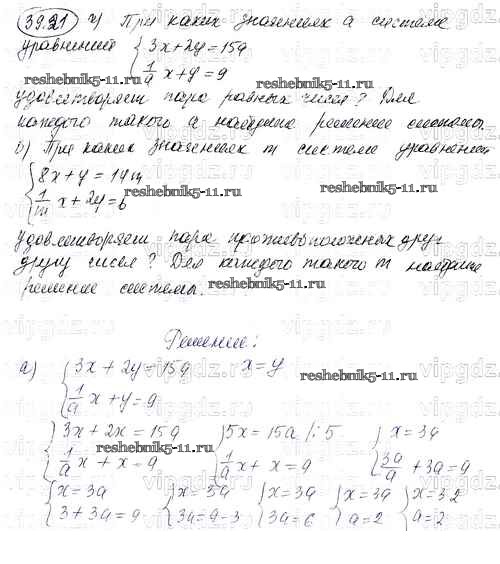 39.21 а) При каких значениях а система
уравнений { 3x+2y=15a
1/a x+y=9
reshebnik5-11.ru reshebnik5-11.ru
удовлетворяет пара равных чисел? Для
каждого такого а найдите решение системы.
reshebnik5-11.ru
б) При каких значениях m система уравнений
{ 8x+y=14m
1/m x+2y=6
reshebnik5-11.ru
удовлетворяет пара противоположных друг
другу чисел? Для каждого такого m найдите
решение системы.
reshebnik5-11.ru
Решение:
а) { 3x+2y=15a x=y
1/a x+y=9
reshebnik5-11.ru
{ 3x+2x=15a { 5x=15a /:5 { x=3a
1/a x+x=9 { 1/a x+x=9 { 3a/a +3a=9
reshebnik5-11.ru
{ x=3a { x=3a { x=3a { x=3a { x=3·2
3+3a=9 3a=9-3 3a=6 a=2 a=2